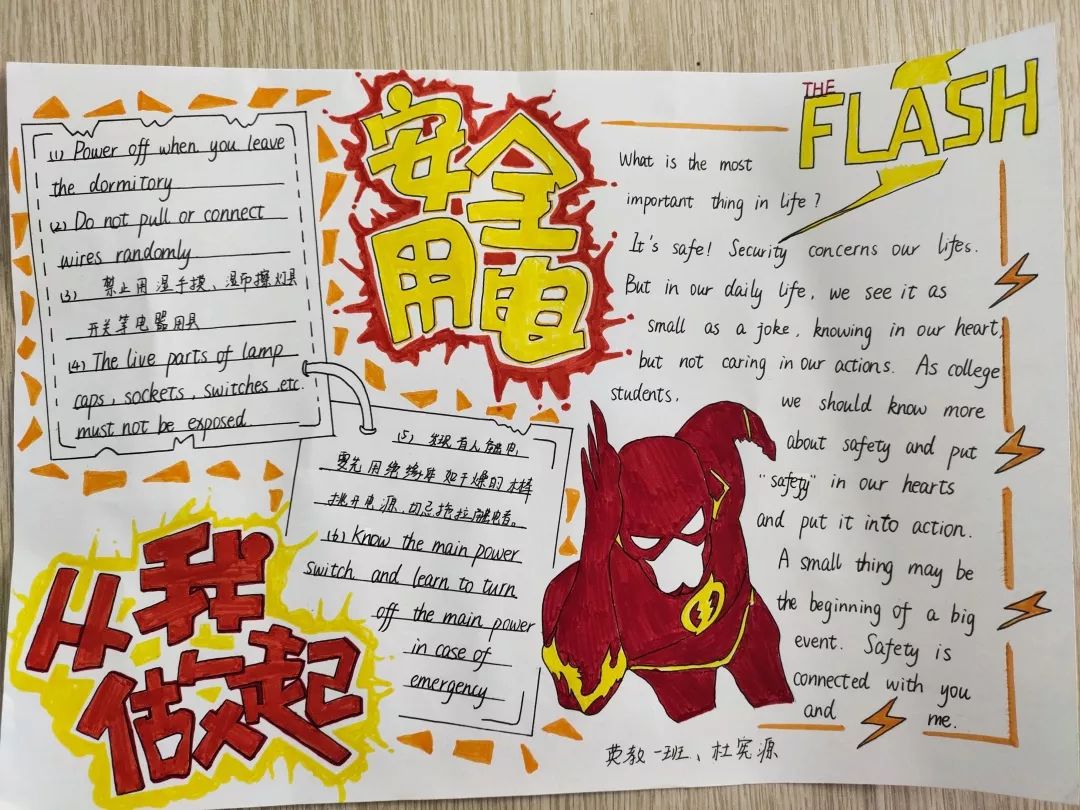 (1) Power off when you leave
the dormitory
(2) Do not pull or connect
wires randomly
(3) 禁止用湿手摸、湿布擦灯具
开关等电器用具
(4) The live parts of lamp
caps, sockets, switches etc.
must not be exposed.
安全
用电
(5) 发现有人触电,
要先用绝缘体如干燥的木棒
挑开电源、切忌拖拉触电者。
(6) Know the main power
switch and learn to turn
off the main power
in case of
emergency
从我
做起
THE
FLASH
What is the most
important thing in life?
It's safe! Security concerns our lifes.
But in our daily life, we see it as
small as a joke, knowing in our heart,
but not caring in our actions. As college
students,
we should know more
about safety and put
"safety" in our hearts
and put it into action.
A small thing may be
the beginning of a big
event. Safety is
connected with you
and me.
英教一班、杜宪源